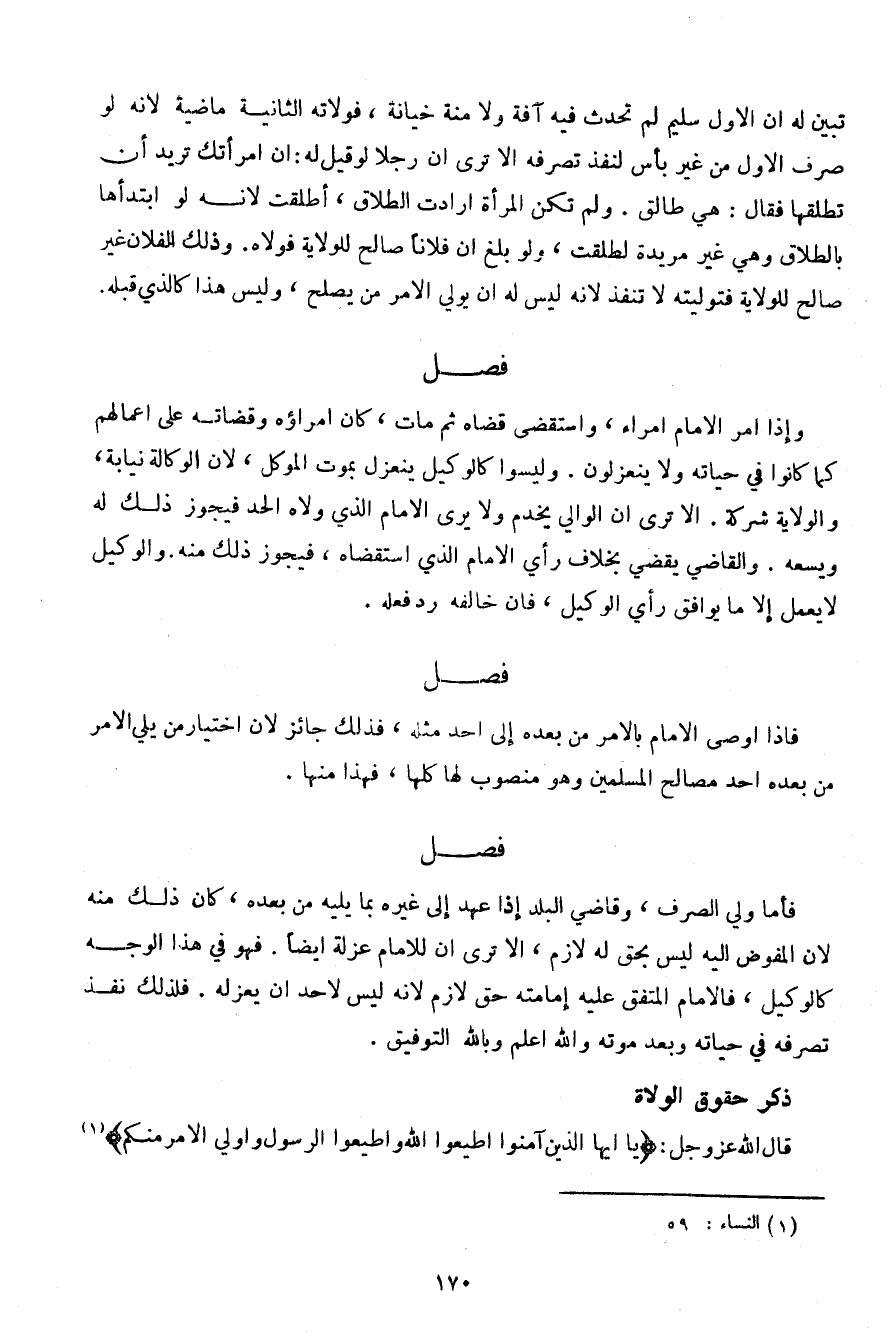 تبين له ان الاول سليم لم تحدث فيه آفة ولا منة خيانة ، فولاته الثانيــة ماضية لانه لو
صرف الاول من غير بأس لنفذ تصرفه الا ترى ان رجلا لوقيل له : ان امرأتك تريد أن
تطلقها فقال : هي طالق . ولم تكن المرأة ارادت الطلاق ، أطلقت لانــه لو ابتدأها
بالطلاق وهي غير مريدة لطلقت ، ولو بلغ ان فلاناً صالح للولاية فولاه. وذلك الفلان غير
صالح للولاية فتوليته لا تنفذ لانه ليس له ان يولي الامر من يصلح ، وليس هذا كالذي قبله.
فصــل
وإذا امر الامام امراء ، واستقضى قضاه ثم مات ، كان امراؤه وقضاتــه على اعمالهم
كما كانوا في حياته ولا ينعزلون . وليسوا كالوكيل ينعزل بموت الموكل ، لان الوكالة نيابة ،
والولاية شركة . الا ترى ان الوالي يخدم ولا يرى الامام الذي ولاه الحد فيجوز ذلــك له
ويسعه . والقاضي يقضي بخلاف رأي الامام الذي استقضاه ، فيجوز ذلك منه. والوكيل
لايعمل إلا ما يوافق رأي الوكيل ، فان خالفه رد فعله .
فصــل
فاذا اوصى الامام بالامر من بعده إلى احد مثله ، فذلك جائز لان اختيار من يلي الامر
من بعده احد مصالح المسلمين وهو منصوب لها كلها ، فهذا منها .
فصــل
فأما ولي الصرف ، وقاضي البلد إذا عهد إلى غيره بما يليه من بعده ، كان ذلــك منه
لان المفوض اليه ليس بحق له لازم ، الا ترى ان للامام عزلة ايضاً . فهو في هذا الوجــه
كالوكيل ، فالامام المتفق عليه إمامته حق لازم لانه ليس لاحد ان يعزله . فلذلك نفــذ
تصرفه في حياته وبعد موته والله اعلم وبالله التوفيق .
ذكر حقوق الولاة
قال الله عز وجل : ﴿يا ايها الذين آمنوا اطيعوا الله واطيعوا الرسول واولي الامر منكم﴾ (١)
(١) النساء : ٥٩
١٧٠